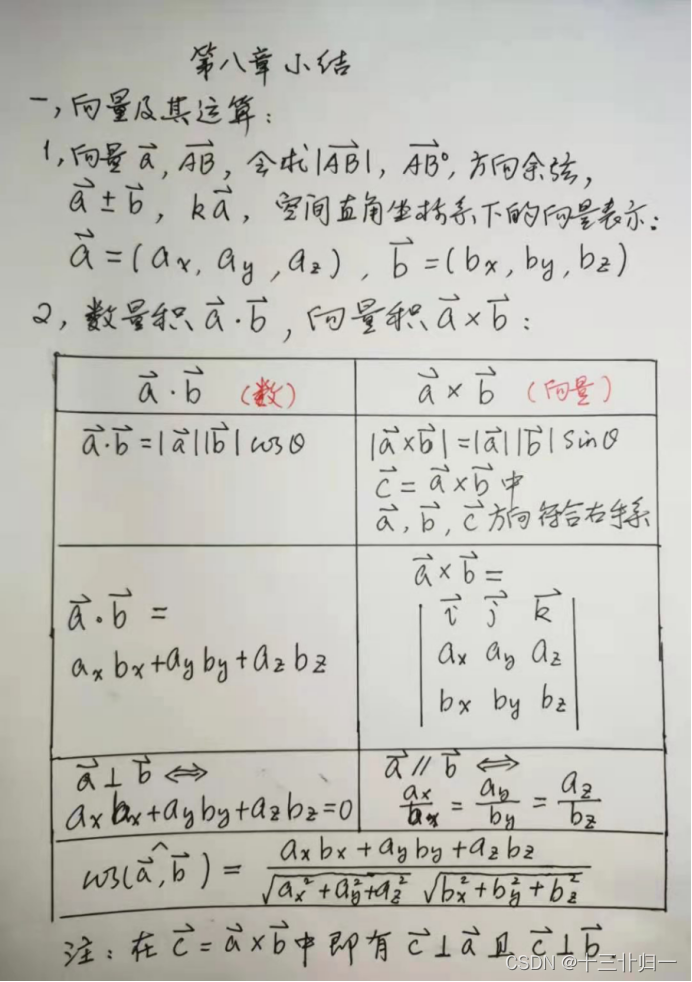 第八章小结
一,向量及其运算:
1,向量 a⃗, AB⃗, 会求|AB⃗|, AB⃗⁰, 方向余弦,
a⃗±b⃗, ka⃗, 空间直角坐标系下的向量表示:
a⃗=(ax, ay, az), b⃗=(bx, by, bz)
2, 数量积 a⃗·b⃗, 向量积 a⃗×b⃗:
a⃗·b⃗ (数)
a⃗×b⃗ (向量)
a⃗·b⃗=|a⃗||b⃗|cosθ
|a⃗×b⃗|=|a⃗||b⃗|sinθ
c⃗=a⃗×b⃗中
a⃗, b⃗, c⃗方向符合右手系
a⃗·b⃗ =
axbx+ayby+azbz
a⃗×b⃗=
| i⃗ j⃗ k⃗ |
| ax ay az |
| bx by bz |
a⃗⊥b⃗ ⇔
axbx+ayby+azbz=0
a⃗∥b⃗ ⇔
ax/bx = ay/by = az/bz
cos(a⃗,^b⃗) = (axbx+ayby+azbz)/(√(ax²+ay²+az²) √(bx²+by²+bz²))
注: 在 c⃗=a⃗×b⃗中即有 c⃗⊥a⃗且 c⃗⊥b⃗.
CSDN @十三卝归一